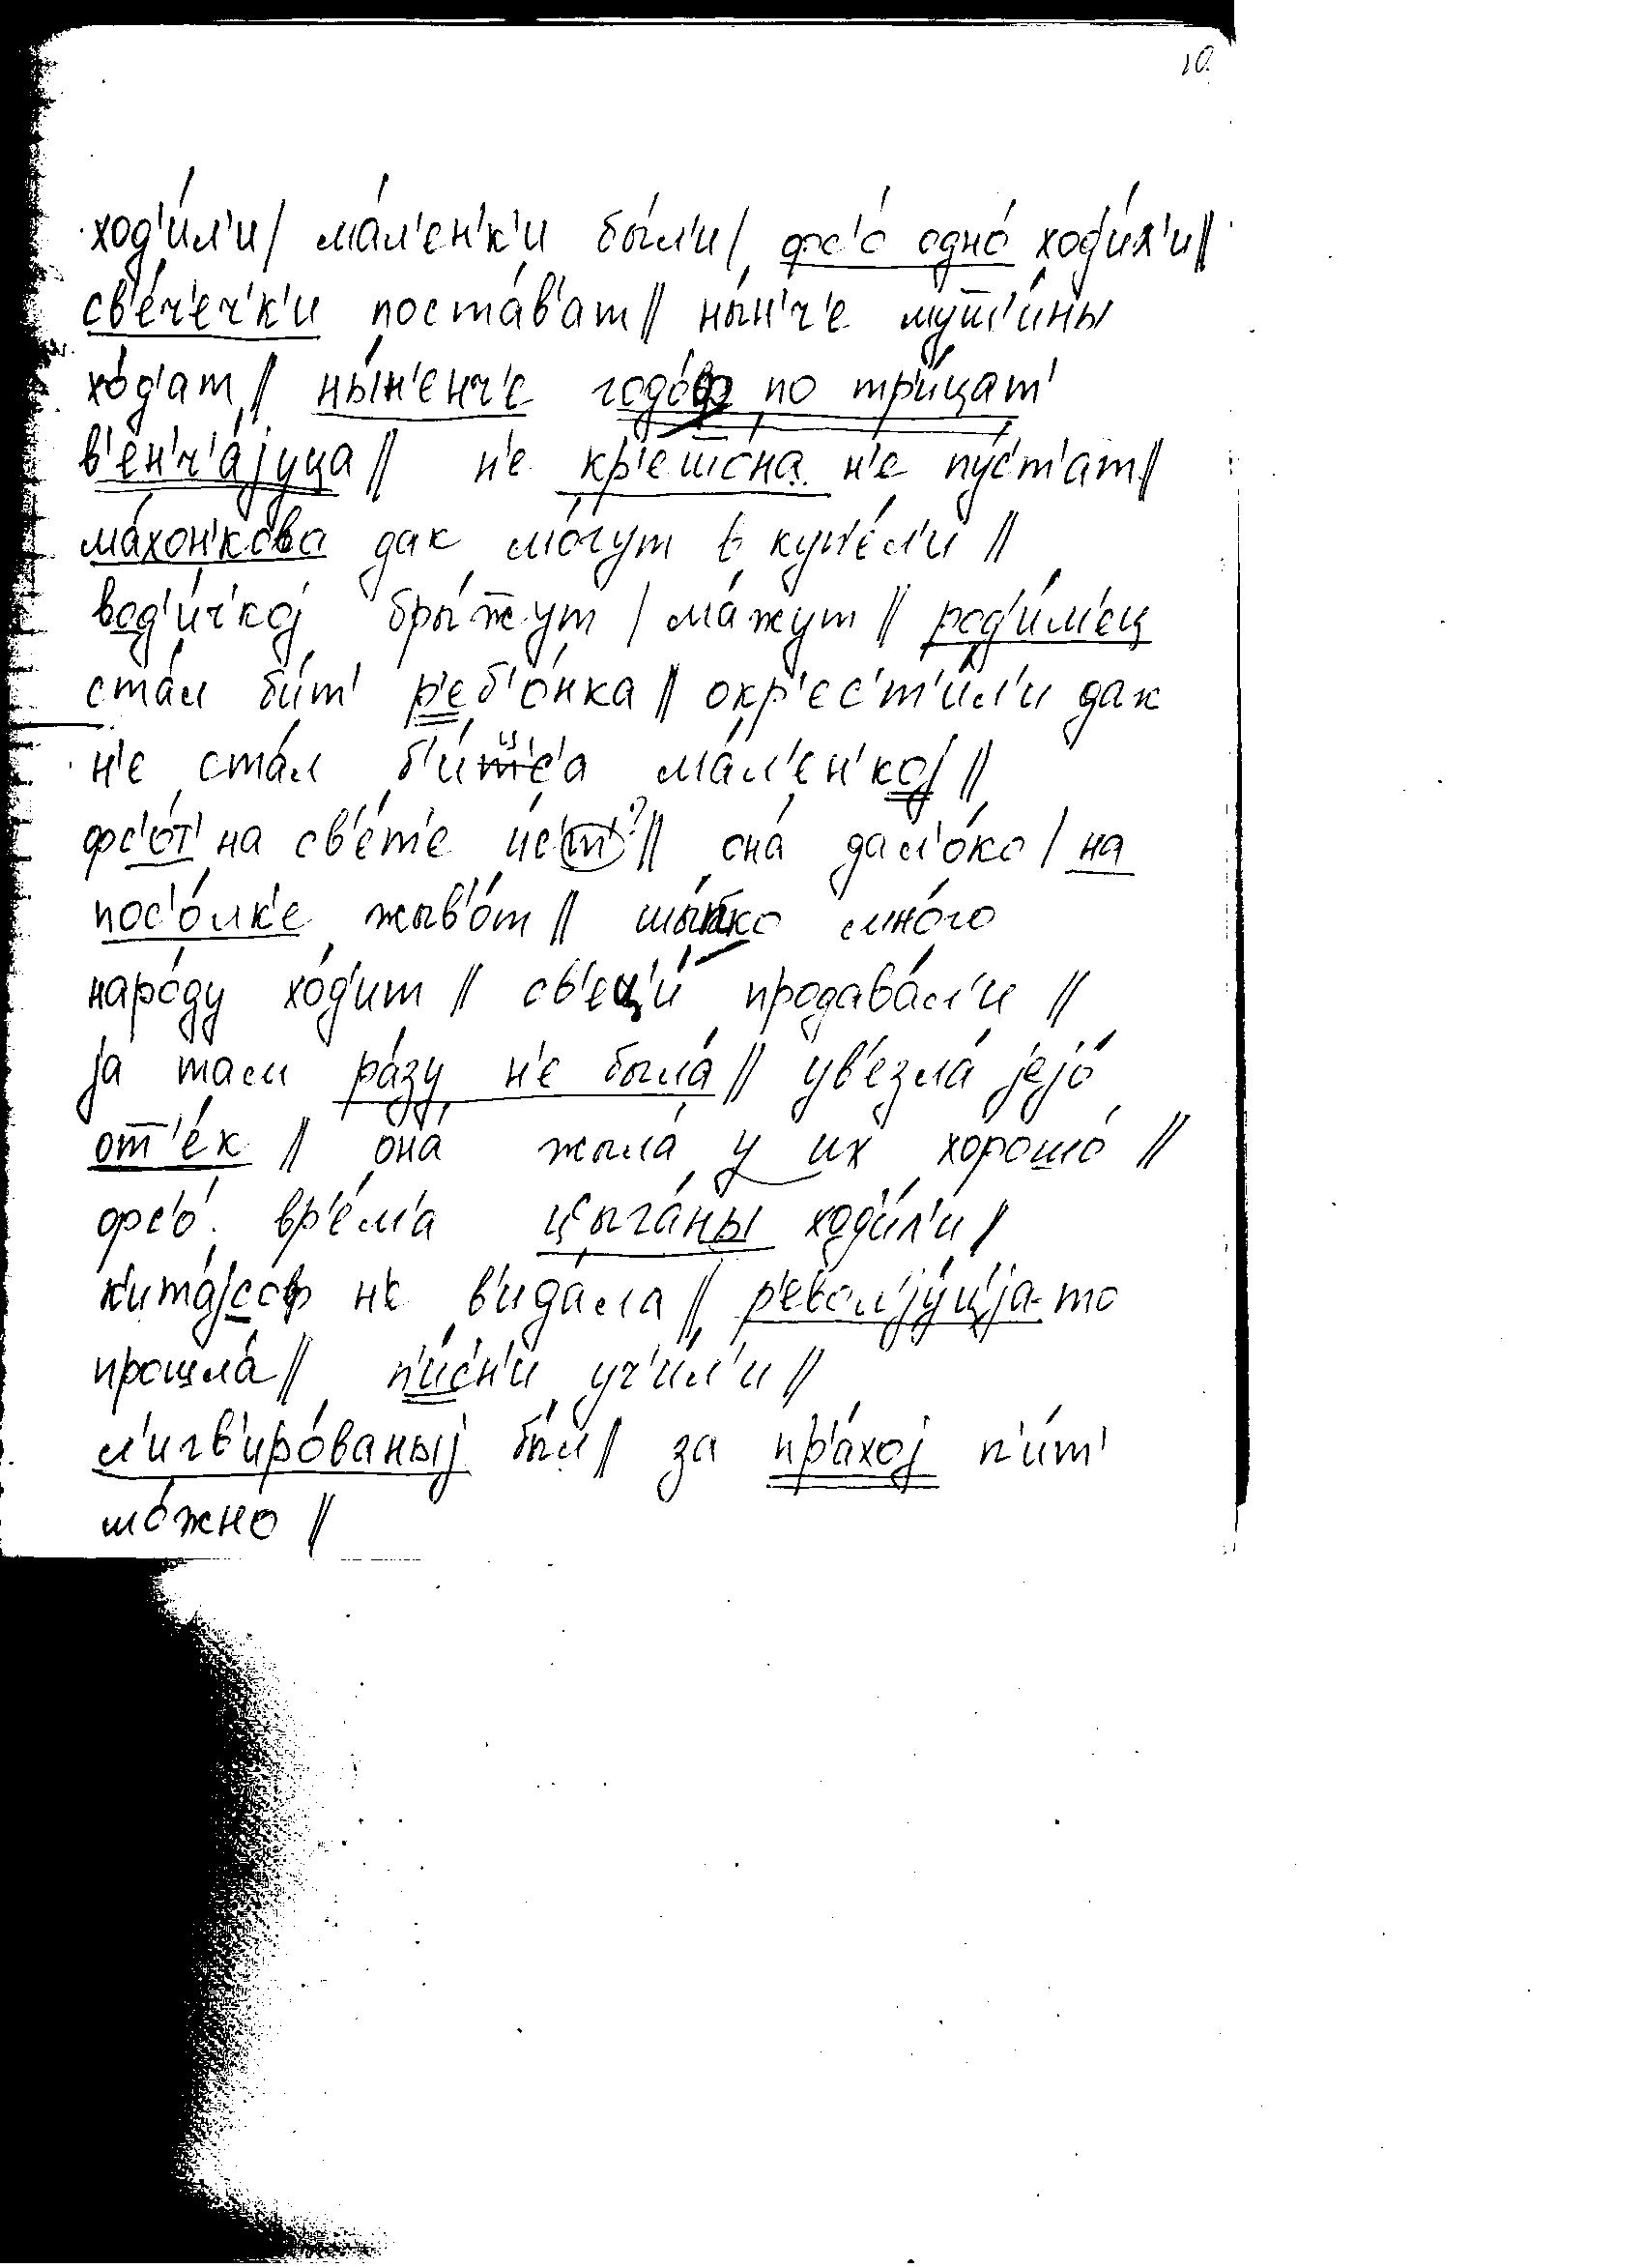 10.
ход'и́л'и / ма́л'ен'к'и бы́л'и / фс'о́ одно́ ход'и́л'и //
св'е́ч'еч'к'и поста́в'ат // ны́н'ч'е муш̅'и́ны
хо́д'ат // ны́н'енч'е годо́ф по тр'и́цат'
в'ен'ч'а́јуца // н'е кр'еш̅о́на н'е пу́с'т'ат //
ма́хон'кова дак мо́гут в куп'е́л'и //
вод'и́ч'кој бры́ж̅ут / ма́жут // род'и́м'ец
ста́л би́т' р'еб'о́нка // окр'ес'т'и́л'и дак
н'е ста́л б'и́ц'а ма́л'ен'кој //
фс'о́т' на св'е́т'е и́с'т'? // она́ дал'о́ко / на
пос'о́лк'е жыв'о́т // шы́пко мно́го
наро́ду хо́д'ит // св'ец'и́ продава́л'и //
ја там ра́зу н'е была́ // ув'езла́ јејо́
от̅'е́к // она́ жыла́ у их хорошо́ //
фс'о́ вр'е́м'а цыга́ны ход'и́л'и //
к'ита́јсоф н'е в'ида́ла // р'евол'ју́ц'ија-то
прошла́ // п'и́с'н'и уч'и́л'и //
л'игв'иро́ваныј бы́л // за пр'а́хој п'и́т'
мо́жно //